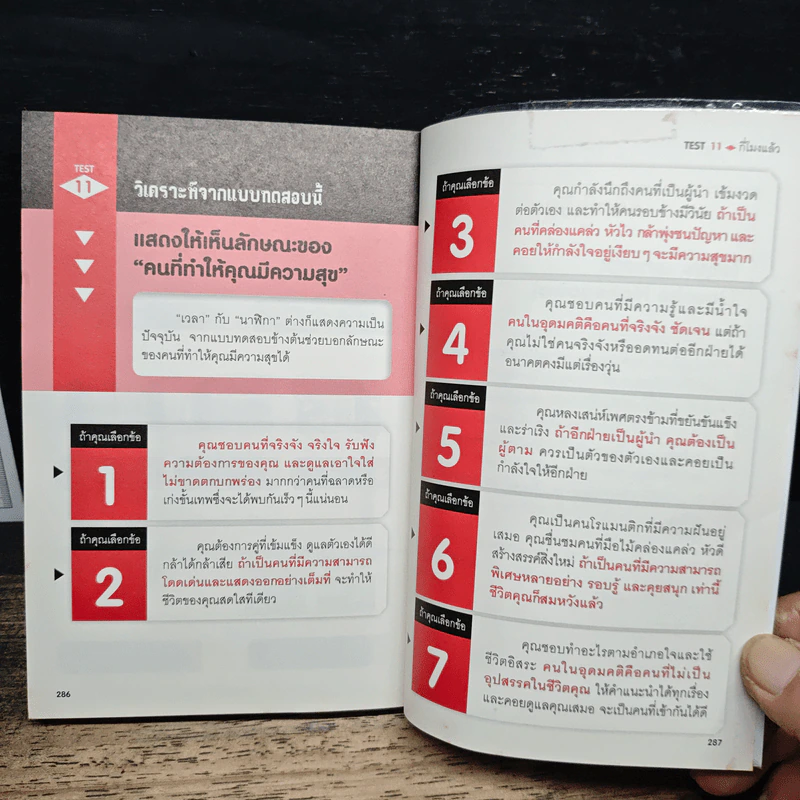 TEST
11
วิเคราะห์จากแบบทดสอบนี้
แสดงให้เห็นลักษณะของ
“คนที่ทำให้คุณมีความสุข”
“เวลา” กับ “นาฬิกา” ต่างก็แสดงความเป็น
ปัจจุบัน จากแบบทดสอบข้างต้นช่วยบอกลักษณะ
ของคนที่ทำให้คุณมีความสุขได้
ถ้าคุณเลือกข้อ
1
คุณชอบคนที่จริงจัง จริงใจ รับฟัง
ความต้องการของคุณ และดูแลเอาใจใส่
ไม่ขาดตกบกพร่อง มากกว่าคนที่ฉลาดหรือ
เก่งขั้นเทพซึ่งจะได้พบกันเร็วๆ นี้แน่นอน
ถ้าคุณเลือกข้อ
2
คุณต้องการคู่ที่เข้มแข็ง ดูแลตัวเองได้ดี
กล้าได้กล้าเสีย ถ้าเป็นคนที่มีความสามารถ
โดดเด่นและแสดงออกอย่างเต็มที่ จะทำให้
ชีวิตของคุณสดใสทีเดียว
286
TEST 11 กี่โมงแล้ว
ถ้าคุณเลือกข้อ
3
คุณกำลังนึกถึงคนที่เป็นผู้นำ เข้มงวด
ต่อตัวเอง และทำให้คนรอบข้างมีวินัย ถ้าเป็น
คนที่คล่องแคล่ว หัวไว กล้าพุ่งชนปัญหา และ
คอยให้กำลังใจอยู่เงียบๆ จะมีความสุขมาก
ถ้าคุณเลือกข้อ
4
คุณชอบคนที่มีความรู้และมีน้ำใจ
คนในอุดมคติคือคนที่จริงจัง ชัดเจน แต่ถ้า
คุณไม่ใช่คนจริงจังหรืออดทนต่ออีกฝ่ายได้
อนาคตคงมีแต่เรื่องวุ่น
ถ้าคุณเลือกข้อ
5
คุณหลงเสน่ห์เพศตรงข้ามที่ขยันขันแข็ง
และร่าเริง ถ้าอีกฝ่ายเป็นผู้นำ คุณต้องเป็น
ผู้ตาม ควรเป็นตัวของตัวเองและคอยเป็น
กำลังใจให้อีกฝ่าย
ถ้าคุณเลือกข้อ
6
คุณเป็นคนโรแมนติกที่มีความฝันอยู่
เสมอ คุณชื่นชมคนที่มือไม้คล่องแคล่ว หัวดี
สร้างสรรค์สิ่งใหม่ ถ้าเป็นคนที่มีความสามารถ
พิเศษหลายอย่าง รอบรู้ และคุยสนุก เท่านี้
ชีวิตคุณก็สมหวังแล้ว
ถ้าคุณเลือกข้อ
7
คุณชอบทำอะไรตามอำเภอใจและใช้
ชีวิตอิสระ คนในอุดมคติคือคนที่ไม่เป็น
อุปสรรคในชีวิตคุณ ให้คำแนะนำได้ทุกเรื่อง
และคอยดูแลคุณเสมอ จะเป็นคนที่เข้ากันได้ดี
287